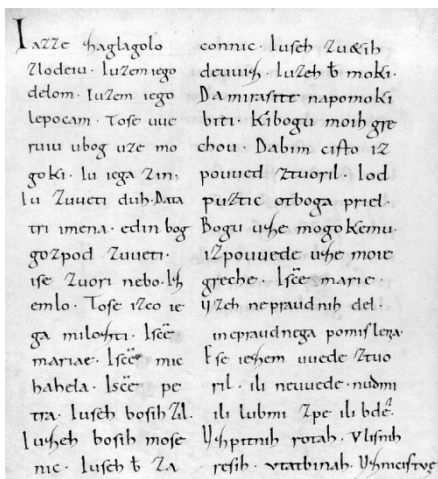 Iazze zaglagolo
zlodeiu. Iuzem iego
delom. Iuzem iego
lepocam. Tose uue
ruiu ubog uze mo
goki. Iu iega zin,
Iu zuueti duh. Data
tri imena. edin bog
gozpod zuueti.
ise zuori nebo. Iz
emlo. Tose izco ie
ga milozti. Iscē
mariae. Iscē mic
hahela. Iscē pe
tra. Iuseh bosih zil.
Iuzeh bosih mose
nic. Iuseh ƀ za
connic. Iuseh zu&ih
deuuiz. Iuzeh ƀ moki.
Da mirasite napomoki
biti. Kibogu moih gre
chou. Dabim cisto iz
pouued ztuoril. Iod
puztic otboga priel.
Bogu uze mogokemu.
izpouuede uze moie
greche. Iscē marie.
Uzeh nepraudnih del.
inepraudnega pomisleza.
Ese iezem uuede ztuo
ril. ili neuuede. nudmi
ili lubmi zpe ili bdē.
Uzpitnih rotah. Vlisnih
resih. vtatbinah. Uznicistuę